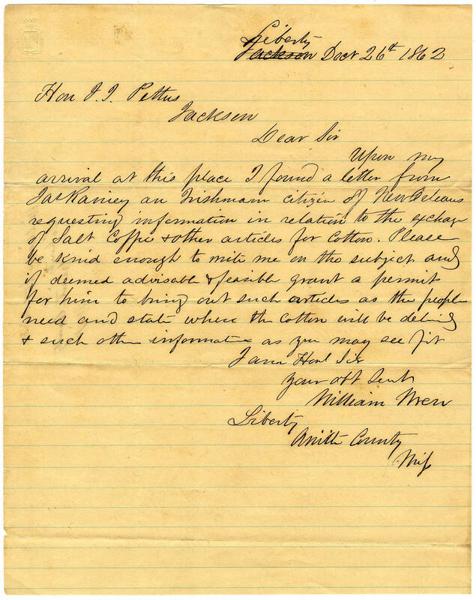 Liberty
Jackson Decr 26th 1862
Hon J. J. Pettus
Jackson
Dear Sir
Upon my
arrival at this place I found a letter from
Jas Rainey an Irishmann citizen of New Orleans
requesting information in relation to the exchag
of Salt Coffe & other articles for Cotton. Please
be kind enough to write me on the subject and
if deemed advisable & feasible grant a permit
for him to bring out such articles as the people
need and state where the cotton will be delivd
& such other information as you may see fit
I am Honl Sir
Your obt Servt
William Wren
Liberty
Amitte County
Miss